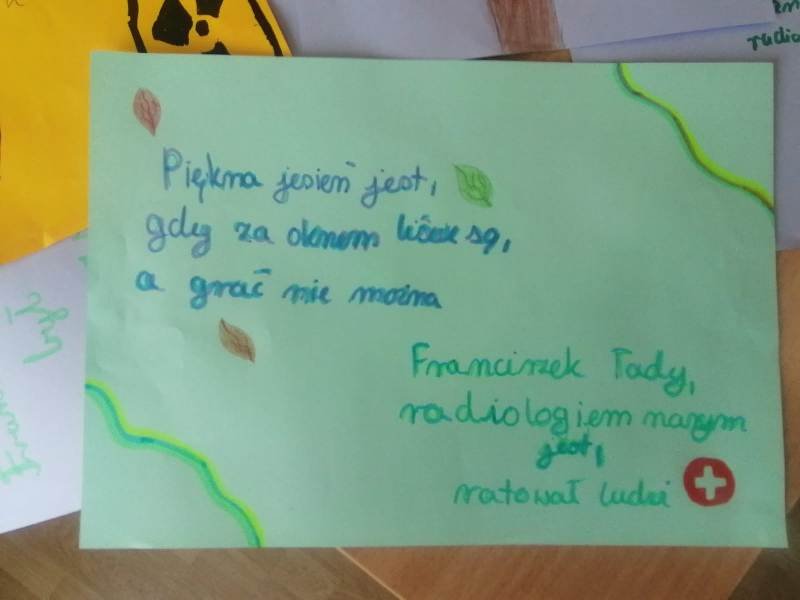 Piękna jesień jest,
gdy za oknem liście są,
a grać nie można
Franciszek Łady,
radiologiem naszym
jest,
ratował ludzi
radio